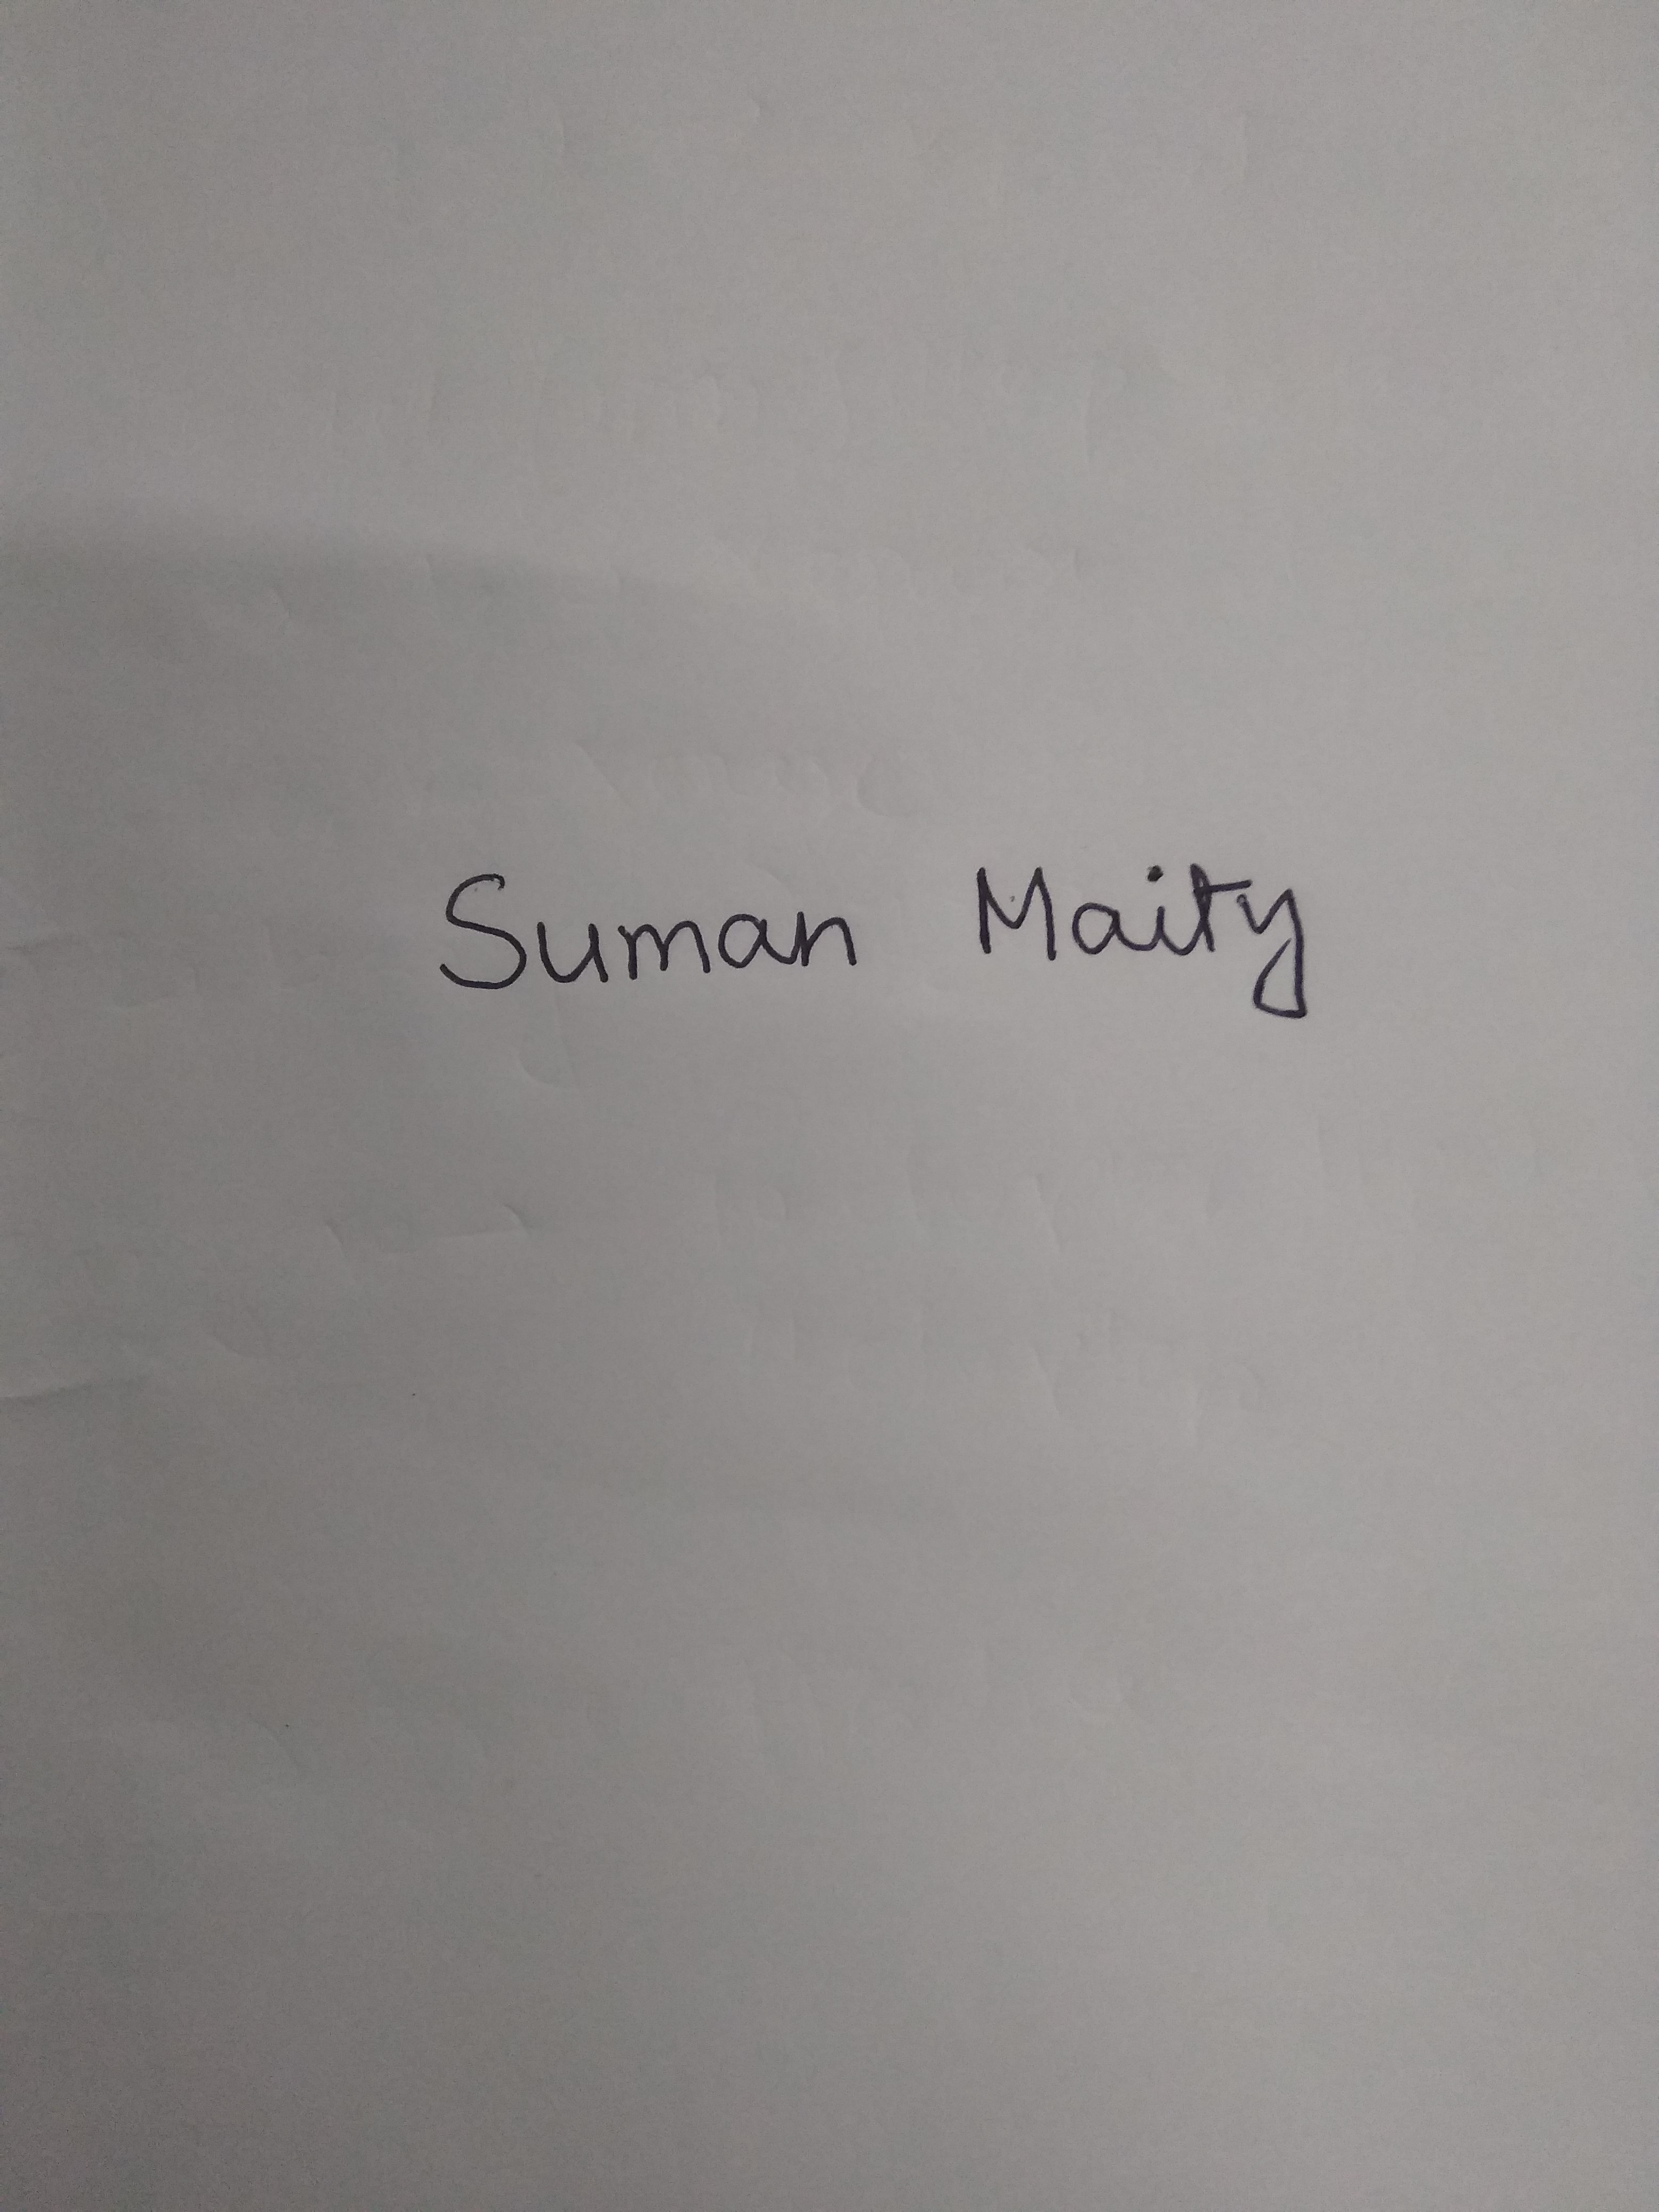 Suman Maity